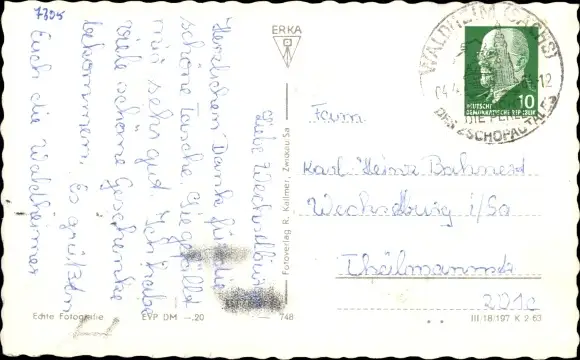 7305
Liebe Wechselburger
Herzlichen Dank für die
schöne Tasche. Sie gefällt
mir sehr gut. Ich habe
viele schöne Geschenke
bekommen. Es grüßen
Euch die Waldheimer
ERKA
Fotoverlag R. Kallmer, Zwickau Sa
Echte Fotografie EVP DM -.20 748
WALDHEIM (SACHS)
-12
DIE PERLE
DES ZSCHOPAUTALES
10
DEUTSCHE
DEMOKRATISCHE REPUBLIK
Fam.
Karl-Heinz
Wechselburg i/Sa
20
III/18/197 K 2 63